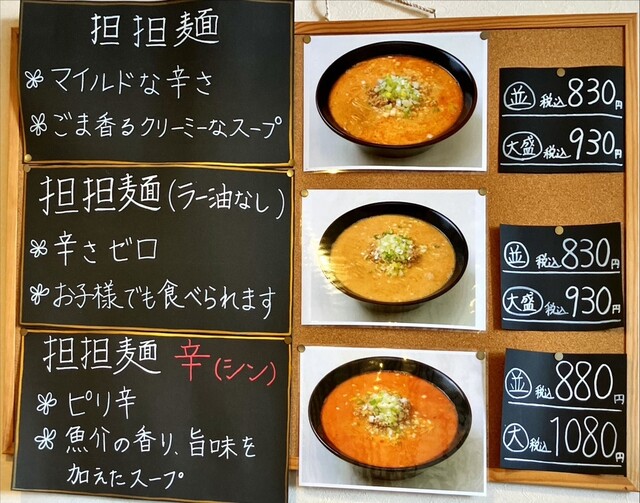 担担麺
マイルドな辛さ
ごま香るクリーミーなスープ
並 税込 830円
大盛 税込 930円
担担麺(ラー油なし)
辛さゼロ
お子様でも食べられます
並 税込 830円
大盛 税込 930円
担担麺 辛(シン)
ピリ辛
魚介の香り、旨味を
加えたスープ
並 税込 880円
大 税込 1080円